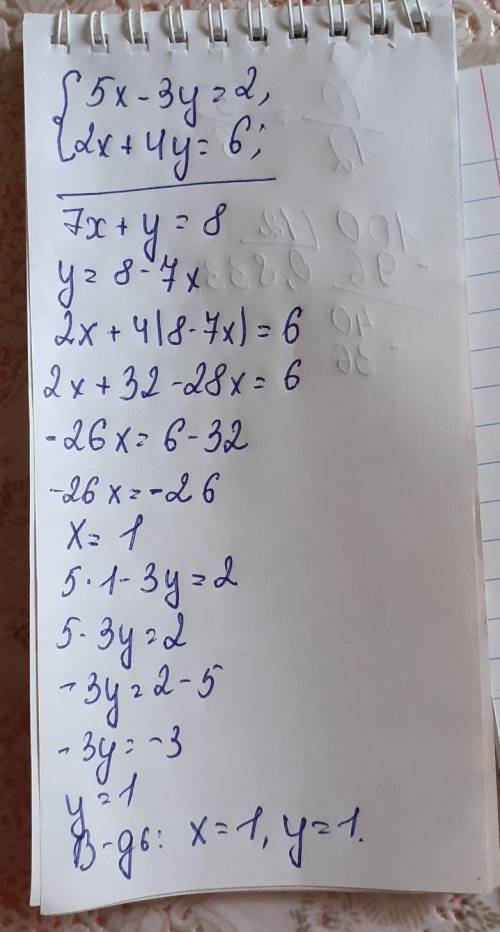 5x - 3y = 2,
2x + 4y = 6;
7x + y = 8
y = 8 - 7x
2x + 4(8 - 7x) = 6
2x + 32 - 28x = 6
-26x = 6 - 32
-26x = -26
x = 1
5·1 - 3y = 2
5 - 3y = 2
-3y = 2 - 5
-3y = -3
y = 1
В-дь: x = 1, y = 1.